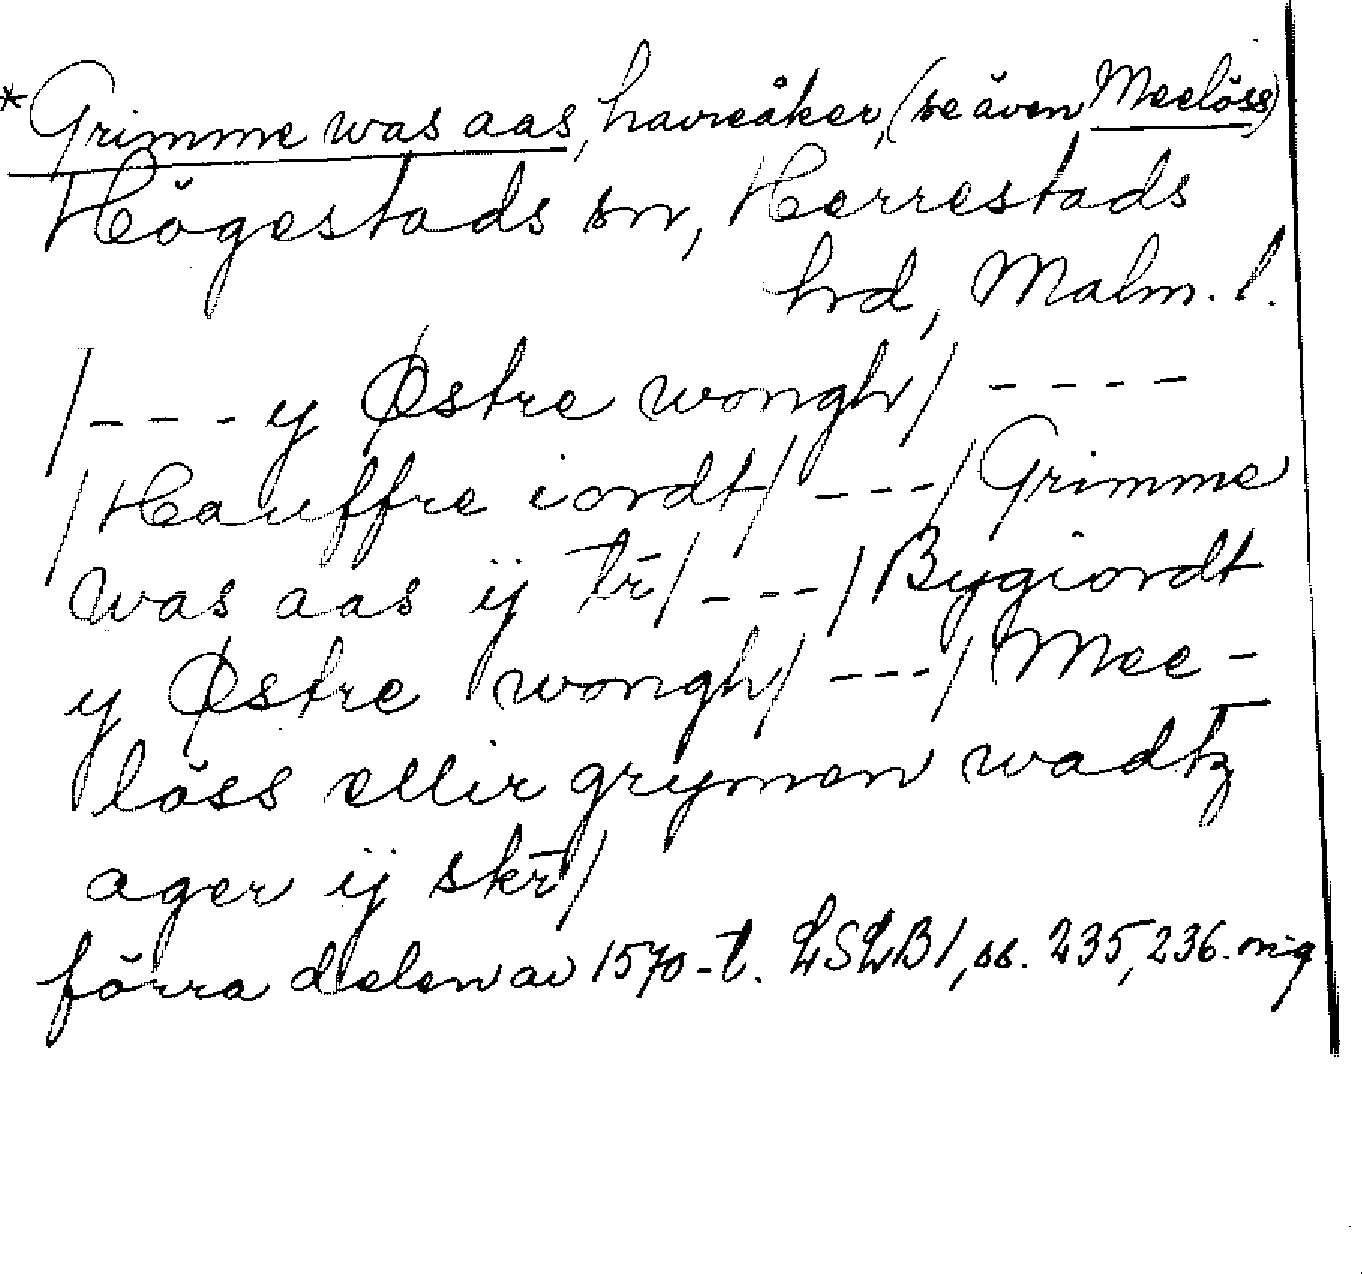 *Grimme was aas, havreåker, (se även Meelöss)
Högestads sn, Herrestads
hrd, Malm. l.
/--- y Østre wongh/ ----
/Hauffre iordt/ ---/Grimme
was aas ij tr̄/---/Bygiordt
y Østre wongh/ ---/Mee-
löss ellir grymen wadtz
ager ij skr̄/
förra delen av 1570-t. LSLB1, ss. 235, 236. orig